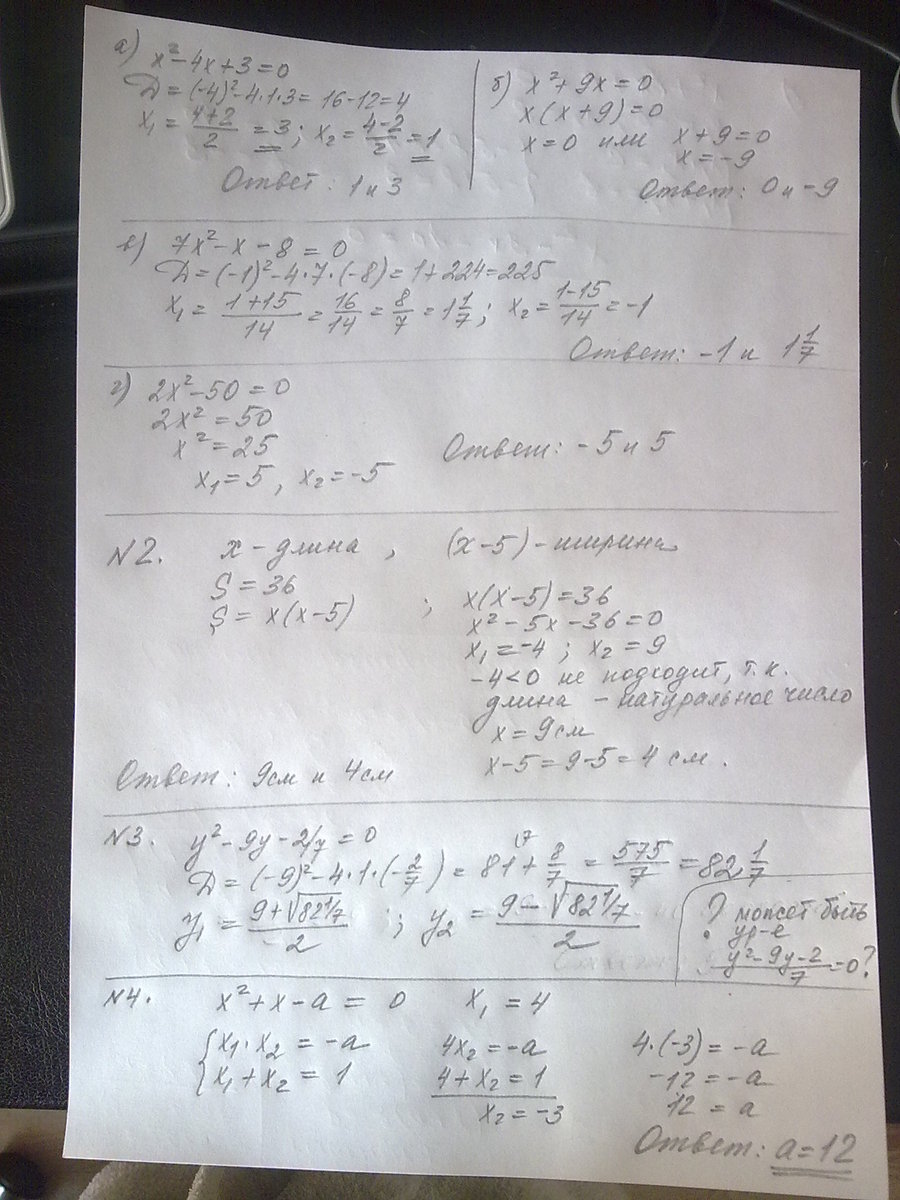 а) x² - 4x + 3 = 0
D = (-4)² - 4·1·3 = 16 - 12 = 4
x₁ = (4+2)/2 = 3; x₂ = (4-2)/2 = 1
Ответ: 1 и 3
б) x² + 9x = 0
x(x + 9) = 0
x = 0 или x + 9 = 0
x = -9
Ответ: 0 и -9
в) 7x² - x - 8 = 0
D = (-1)² - 4·7·(-8) = 1 + 224 = 225
x₁ = (1+15)/14 = 16/14 = 8/7 = 1 1/7; x₂ = (1-15)/14 = -1
Ответ: -1 и 1 1/7
г) 2x² - 50 = 0
2x² = 50
x² = 25
x₁ = 5, x₂ = -5
Ответ: -5 и 5
N2. x - длина, (x-5) - ширина
S = 36
S = x(x-5);
x(x-5) = 36
x² - 5x - 36 = 0
x₁ = -4; x₂ = 9
-4<0 не подходит, т.к.
длина - натуральное число
x = 9см
x - 5 = 9 - 5 = 4 см.
Ответ: 9см и 4см
N3. y² - 9y - 2/7 = 0
D = (-9)² - 4·1·(-2/7) = 81 + 8/7 = 575/7 = 82 1/7
y₁ = (9+√82 1/7)/2; y₂ = (9-√82 1/7)/2
? может быть
ур-е
(y² - 9y - 2)/7 = 0?
N4. x² + x - a = 0 x₁ = 4
{x₁·x₂ = -a 4x₂ = -a 4·(-3) = -a
{x₁ + x₂ = 1 4 + x₂ = 1 -12 = -a
x₂ = -3 12 = a
Ответ: a = 12